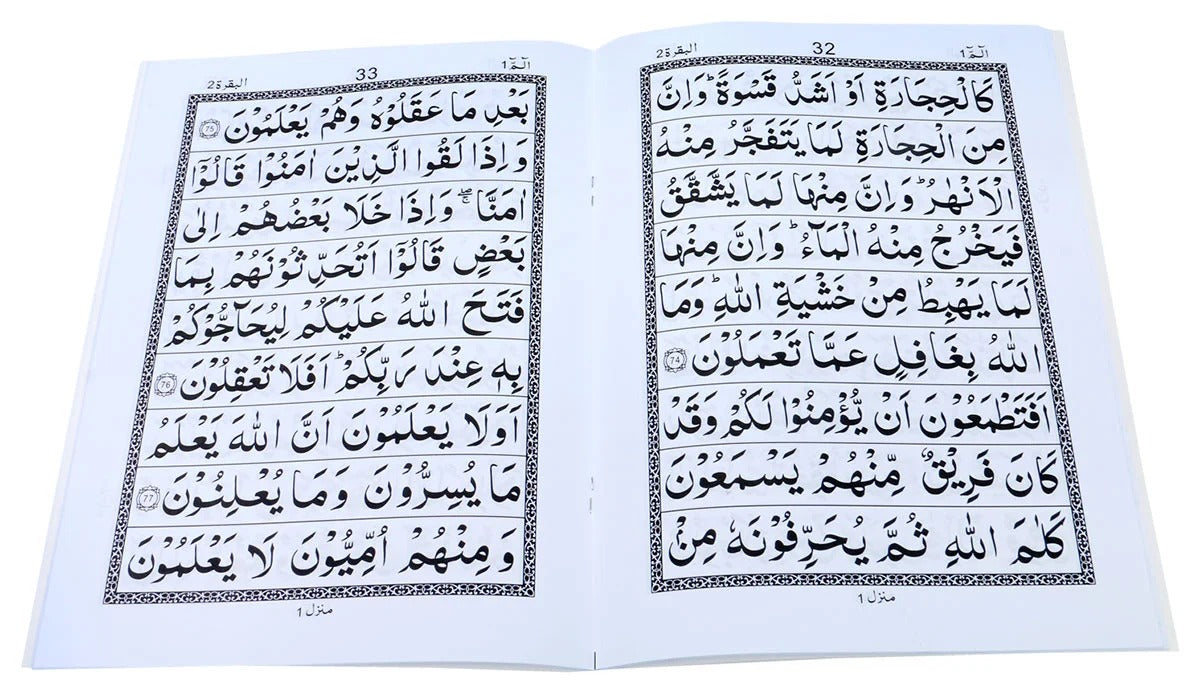 الٓمّٓ ١ 32 البقرة 2
كَالْحِجَارَةِ اَوْ اَشَدُّ قَسْوَةً ؕ وَاِنَّ
مِنَ الْحِجَارَةِ لَمَا يَتَفَجَّرُ مِنْهُ
الْاَنْهٰرُ ؕ وَاِنَّ مِنْهَا لَمَا يَشَّقَّقُ
فَيَخْرُجُ مِنْهُ الْمَآءُ ؕ وَاِنَّ مِنْهَا
لَمَا يَهْبِطُ مِنْ خَشْيَةِ اللّٰهِ ؕ وَمَا
اللّٰهُ بِغَافِلٍ عَمَّا تَعْمَلُوْنَ 74
اَفَتَطْمَعُوْنَ اَنْ يُّؤْمِنُوْا لَكُمْ وَقَدْ
كَانَ فَرِيْقٌ مِّنْهُمْ يَسْمَعُوْنَ
كَلٰمَ اللّٰهِ ثُمَّ يُحَرِّفُوْنَهٗ مِنْۢ
منزل 1
الٓمّٓ 1 33 البقرة 2
بَعْدِ مَا عَقَلُوْهُ وَهُمْ يَعْلَمُوْنَ 75
وَاِذَا لَقُوا الَّذِيْنَ اٰمَنُوْا قَالُوْٓا
اٰمَنَّا ۖۚ وَاِذَا خَلَا بَعْضُهُمْ اِلٰى
بَعْضٍ قَالُوْٓا اَتُحَدِّثُوْنَهُمْ بِمَا
فَتَحَ اللّٰهُ عَلَيْكُمْ لِيُحَآجُّوْكُمْ
بِهٖ عِنْدَ رَبِّكُمْ ؕ اَفَلَا تَعْقِلُوْنَ 76
اَوَلَا يَعْلَمُوْنَ اَنَّ اللّٰهَ يَعْلَمُ
مَا يُسِرُّوْنَ وَمَا يُعْلِنُوْنَ 77
وَمِنْهُمْ اُمِّيُّوْنَ لَا يَعْلَمُوْنَ
منزل 1